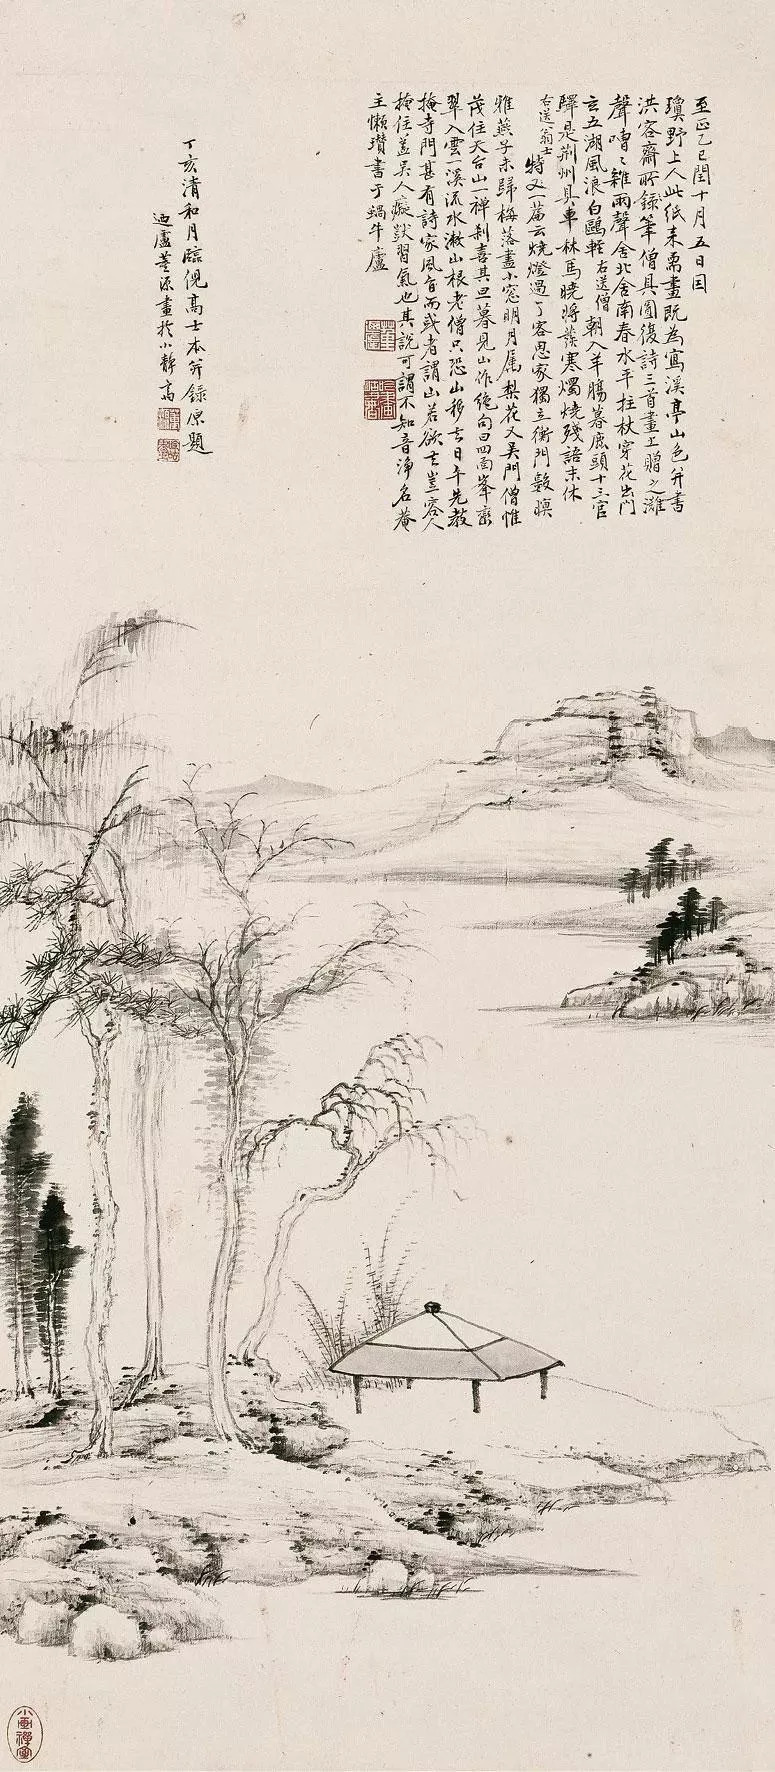 至正乙巳閏十月五日因
璜野上人此紙來需畫既為寫溪亭山色并書
洪容齋所錄筆僧具圓復詩三首畫上贈之灘
聲嘈〻雜雨聲舍北舍南春水平拄杖穿花出門
去五湖風浪白鷗輕右送僧朝入羊腸暮鹿頭十三官
驛是荆州具車秣馬曉將發寒燭燒殘語未休
右送翁士特又一篇云燒燈過了客思家獨立衡門數暝
雅燕子未歸梅落盡小窓明月属梨花又吳門僧惟
茂住天台山一禪刹喜其旦暮見山作絶句曰四面峯巒
翠入雲一溪流水漱山根老僧只恐山移去日午先教
掩寺門甚有詩家風旨而或者謂山若欲去豈容人
掩住蓋吳人癡獃習氣也其說可謂不知音淨名菴
主懶瓚書于蝸牛廬
丁亥清和月臨倪高士本并錄原題
廬董源畫於小靜高
小画禪室